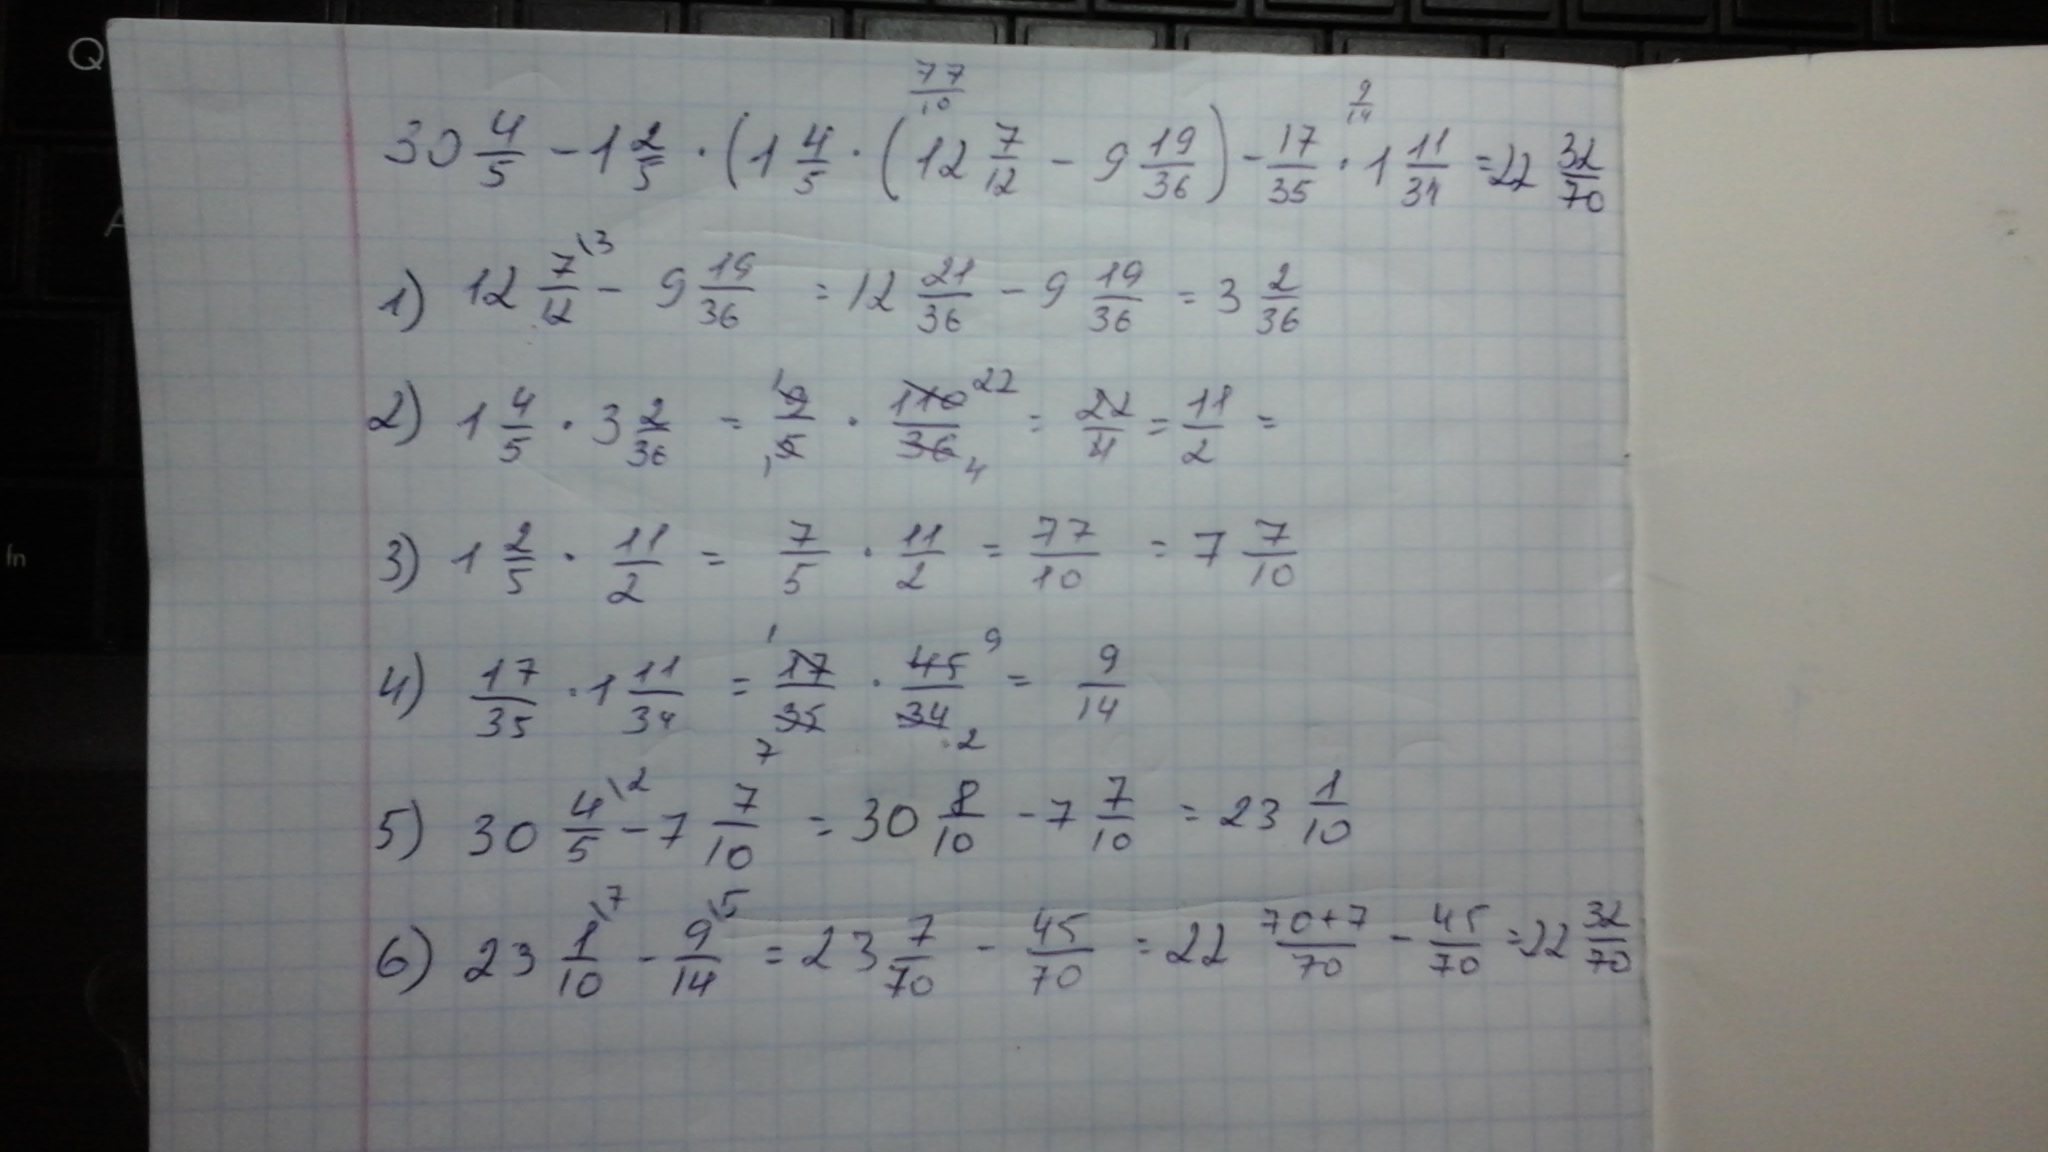 Q
A
fn
77/10 9/14
30 4/5 - 1 2/5 · (1 4/5 · (12 7/12 - 9 19/36) - 17/35 · 1 11/34 = 22 32/70
1) 12 7/12 \3 - 9 19/36 = 12 21/36 - 9 19/36 = 3 2/36
2) 1 4/5 · 3 2/36 = 9/5 1 1 · 110/36 22 4 = 22/4 = 11/2 =
3) 1 2/5 · 11/2 = 7/5 · 11/2 = 77/10 = 7 7/10
4) 17/35 · 1 11/34 = 17/35 1 7 · 45/34 9 2 = 9/14
5) 30 4/5 \2 - 7 7/10 = 30 8/10 - 7 7/10 = 23 1/10
6) 23 1/10 \7 - 9/14 \5 = 23 7/70 - 45/70 = 22 70+7/70 - 45/70 = 22 32/70